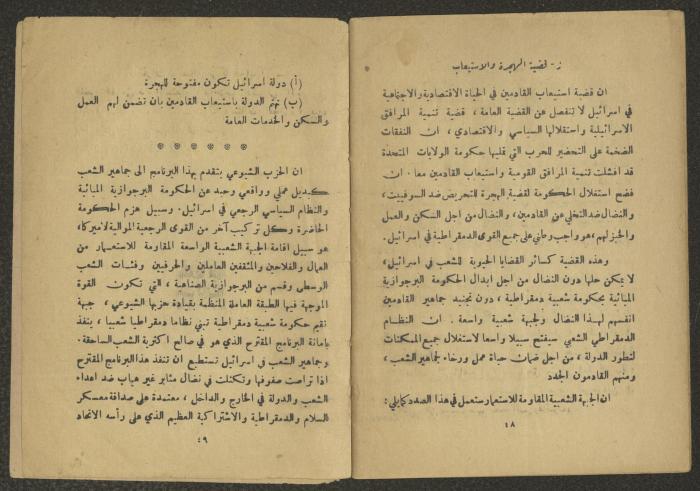 ز - قضية الهجرة والاستيعاب
ان قضية استيعاب القادمين في الحياة الاقتصادية والاجتماعية
في اسرائيل لا تنفصل عن القضية العامة، قضية تنمية المرافق
الاسرائيلية واستقلالها السياسي والاقتصادي، ان النفقات
الضخمة على التحضير للحرب التي تمليها حكومة الولايات المتحدة
قد افشلت تنمية المرافق القومية واستيعاب القادمين معا. ان
فضح استغلال الحكومة لقضية الهجرة للتحريض ضد السوفييت،
والنضال ضد التخلي عن القادمين، والنضال من اجل السكن والعمل
والخبز لهم، هو واجب وطني على جميع القوى الدمقراطية في اسرائيل.
وهذه القضية كسائر القضايا الحيوية للشعب في اسرائيل،
لا يمكن حلها دون النضال من اجل ابدال الحكومة البرجوازية
المبائية بحكومة شعبية دمقراطية، دون تجنيد جماهير القادمين
انفسهم لهذا النضال ولجبهة شعبية واسعة. ان النظام
الدمقراطي الشعبي سيفتح سبيلا واسعا لاستغلال جميع الممكنات
لتطور الدولة، من اجل ضمان حياة عمل ورخاء لجماهير الشعب،
ومنهم القادمون الجدد
ان الجبهة الشعبية المقاومة للاستعمار ستعمل في هذا الصدد كما يلي:
٤٨
(أ) دولة اسرائيل تكون مفتوحة للهجرة
(ب) تهتم الدولة باستيعاب القادمين بان تضمن لهم العمل
والسكن والخدمات العامة
* * * * * *
ان الحزب الشيوعي يتقدم بهذا البرنامج الى جماهير الشعب
كبديل عملي وواقعي وحيد عن الحكومة البرجوازية المبائية
والنظام السياسي الرجعي في اسرائيل. وسبيل هزم الحكومة
الحاضرة وكل تركيب آخر من القوى الرجعية الموالية لاميركا،
هو سبيل اقامة الجبهة الشعبية الواسعة المقاومة للاستعمار من
العمال والفلاحين والمثقفين العاملين والحرفيين وفئات الشعب
الوسطى وقسم من البرجوازية الصناعية، التي تكون القوة
الموجهة فيها الطبقة العاملة المنظمة بقيادة حزبها الشيوعي، جبهة
تقيم حكومة شعبية دمقراطية تبني نظاما دمقراطيا شعبيا، ينفذ
بامانة البرنامج المقترح الذي هو في صالح اكثرية الشعب الساحقة.
وجماهير الشعب في اسرائيل تستطيع ان تنفذ هذا البرنامج المقترح
اذا تراصت صفوفها وتكتلت في نضال مثابر غير هياب ضد اعداء
الشعب والدولة في الخارج والداخل، معتمدة على صداقة معسكر
السلام والدمقراطية والاشتراكية العظيم الذي على رأسه الاتحاد
٤٩